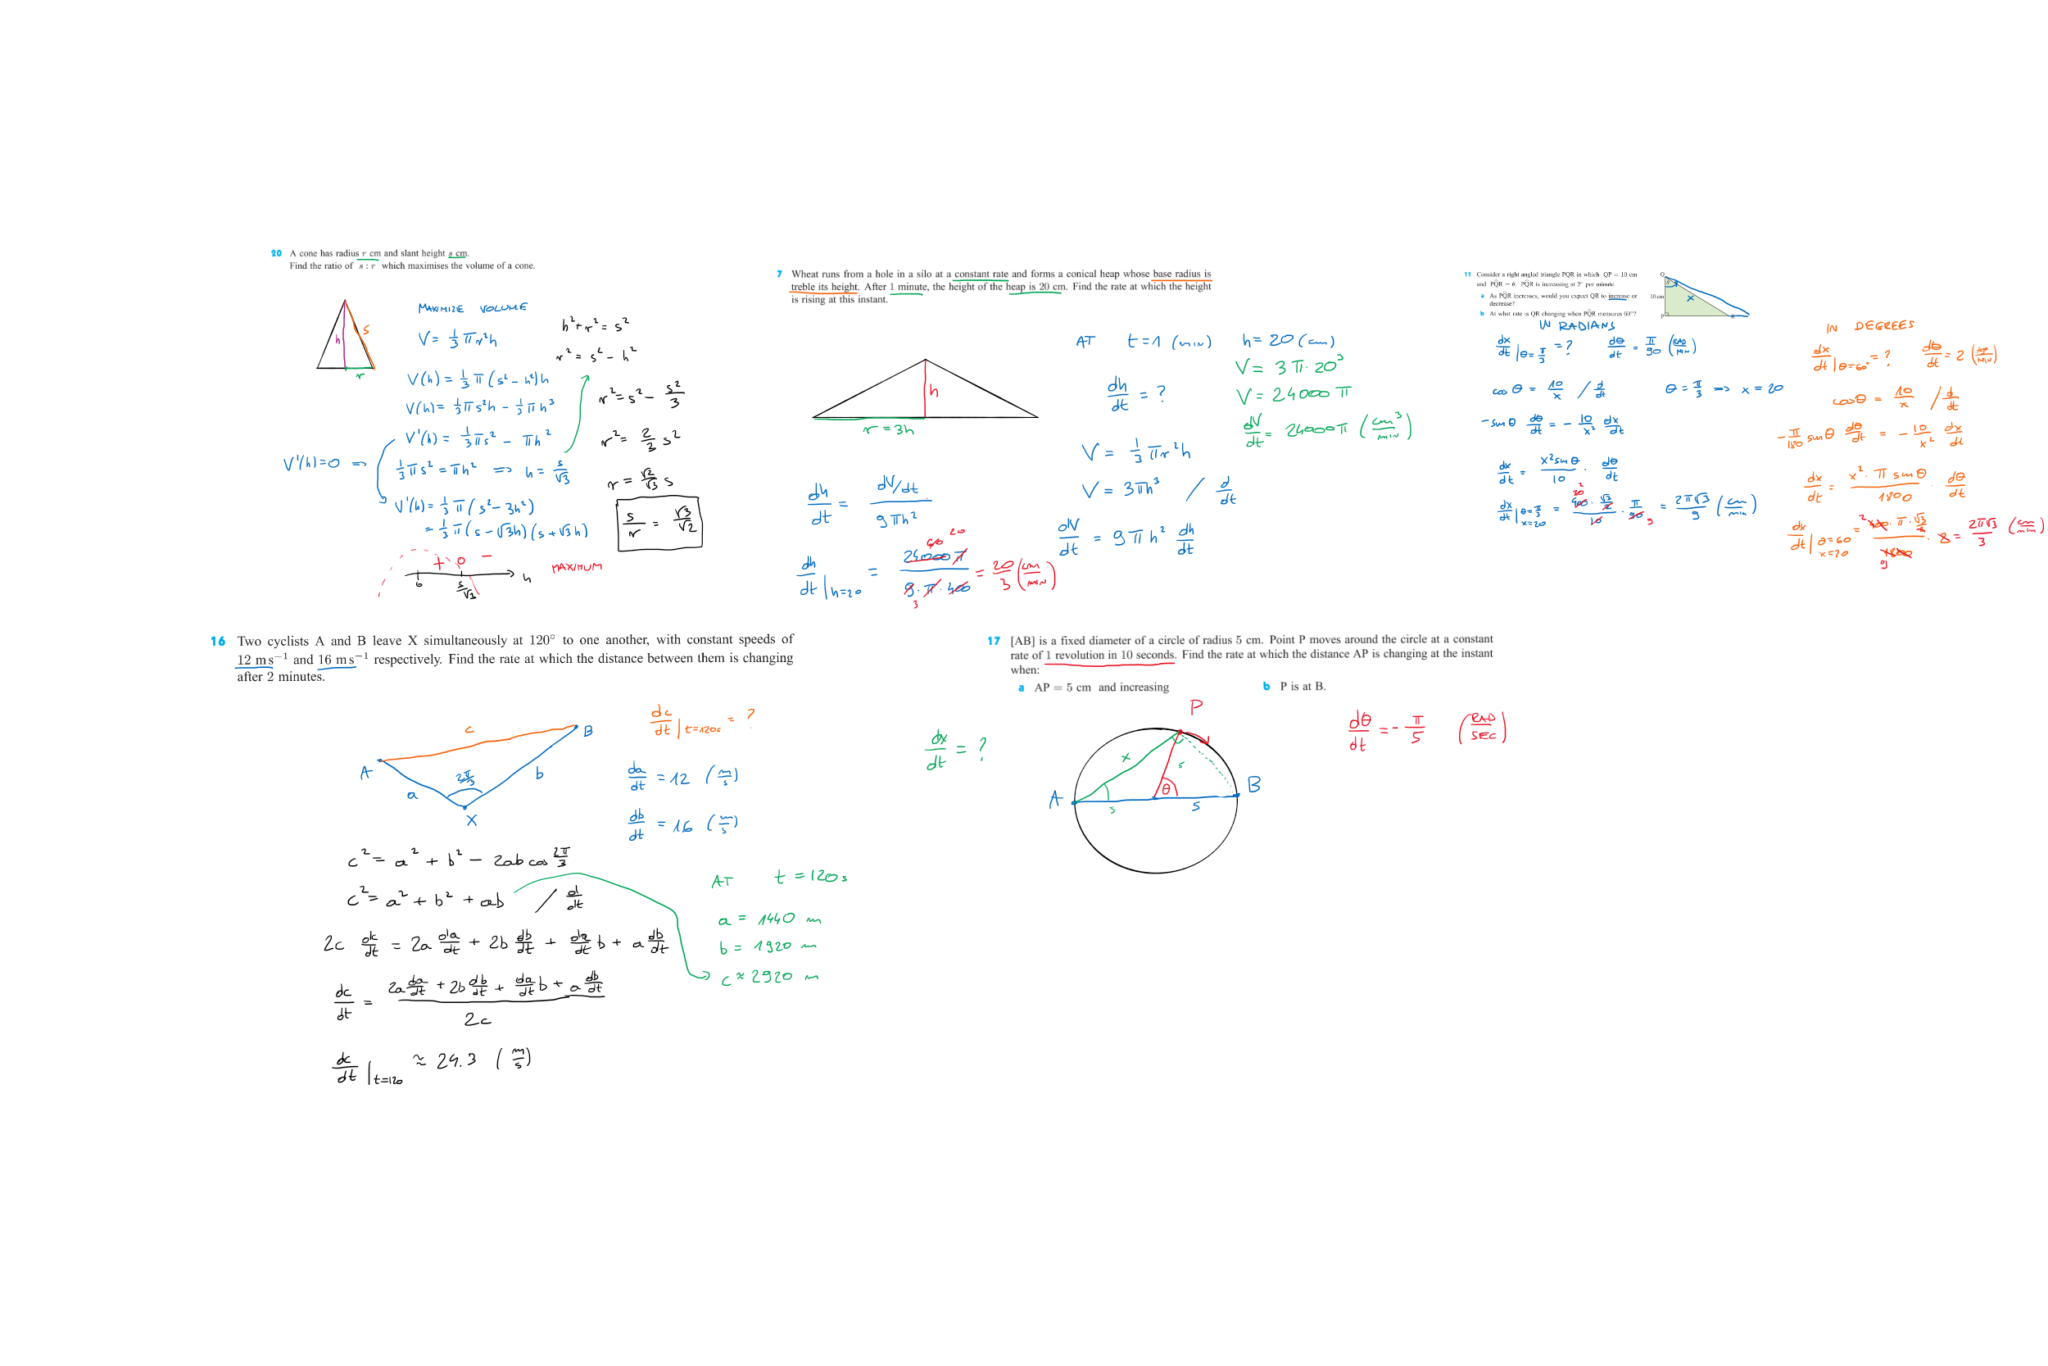 20 A cone has radius r cm and slant height s cm.
Find the ratio of s : r which maximises the volume of a cone.
h
s
r
MAXIMIZE VOLUME
V = 1/3 πr²h
h² + r² = s²
r² = s² - h²
V(h) = 1/3 π(s² - h²)h
V(h) = 1/3 πs²h - 1/3 πh³
V'(h) = 1/3 πs² - πh²
V'(h)=0 ⇒ 1/3 πs² = πh² ⇒ h = s/√3
V'(h) = 1/3 π(s² - 3h²)
= 1/3 π(s - √3h)(s + √3h)
r² = s² - s²/3
r² = 2/3 s²
r = √2/√3 s
s/r = √3/√2
+ 0 -
MAXIMUM
0 s/√3 h
7 Wheat runs from a hole in a silo at a constant rate and forms a conical heap whose base radius is
treble its height. After 1 minute, the height of the heap is 20 cm. Find the rate at which the height
is rising at this instant.
h
r = 3h
AT t=1 (MIN) h = 20 (cm)
V = 3π·20³
dh/dt = ?
V = 24000π
dV/dt = 24000π (cm³/MIN)
V = 1/3 πr²h
V = 3πh³ / d/dt
dV/dt = 9πh² dh/dt
dh/dt = dV/dt / 9πh²
dh/dt |h=20 = 24000π / 9·π·400 = 20/3 (cm/MIN)
60 20
3
11 Consider a right angled triangle PQR in which QP = 10 cm
and PQ̂R = θ. PQ̂R is increasing at 2° per minute.
a As PQ̂R increases, would you expect QR to increase or
decrease?
b At what rate is QR changing when PQ̂R measures 60°?
Q
θ
10 cm
x
P
IN RADIANS
dx/dt |θ=π/3 = ? dθ/dt = π/90 (RAD/MIN)
cos θ = 10/x / d/dt θ = π/3 ⇒ x = 20
-sin θ dθ/dt = - 10/x² dx/dt
dx/dt = x² sin θ/10 · dθ/dt
dx/dt |θ=π/3 x=20 = 400·√3/2 / 10 · π/90 = 2π√3/9 (cm/MIN)
IN DEGREES
dx/dt |θ=60° = ? dθ/dt = 2
cos θ = 10/x / d/dt
-π/180 sin θ dθ/dt = - 10/x² dx/dt
dx/dt = x²·π sin θ/1800 · dθ/dt
dx/dt |θ=60 x=20
= 2π√3/3 (cm/min)
16 Two cyclists A and B leave X simultaneously at 120° to one another, with constant speeds of
12 m s⁻¹ and 16 m s⁻¹ respectively. Find the rate at which the distance between them is changing
after 2 minutes.
A
c
B
a
2π/3
b
X
dc/dt |t=120s = ?
da/dt = 12 (m/s)
db/dt = 16 (m/s)
c² = a² + b² - 2ab cos 2π/3
c² = a² + b² + ab / d/dt
2c dc/dt = 2a da/dt + 2b db/dt + da/dt b + a db/dt
dc/dt = 2a da/dt + 2b db/dt + da/dt b + a db/dt / 2c
dc/dt |t=120 ≈ 24.3 (m/s)
AT t = 120s
a = 1440 m
b = 1920 m
c ≈ 2920 m
17 [AB] is a fixed diameter of a circle of radius 5 cm. Point P moves around the circle at a constant
rate of 1 revolution in 10 seconds. Find the rate at which the distance AP is changing at the instant
when:
a AP = 5 cm and increasing b P is at B.
dx/dt = ?
P
x
5
θ
A
5
5
B
dθ/dt = - π/5 (RAD/SEC)